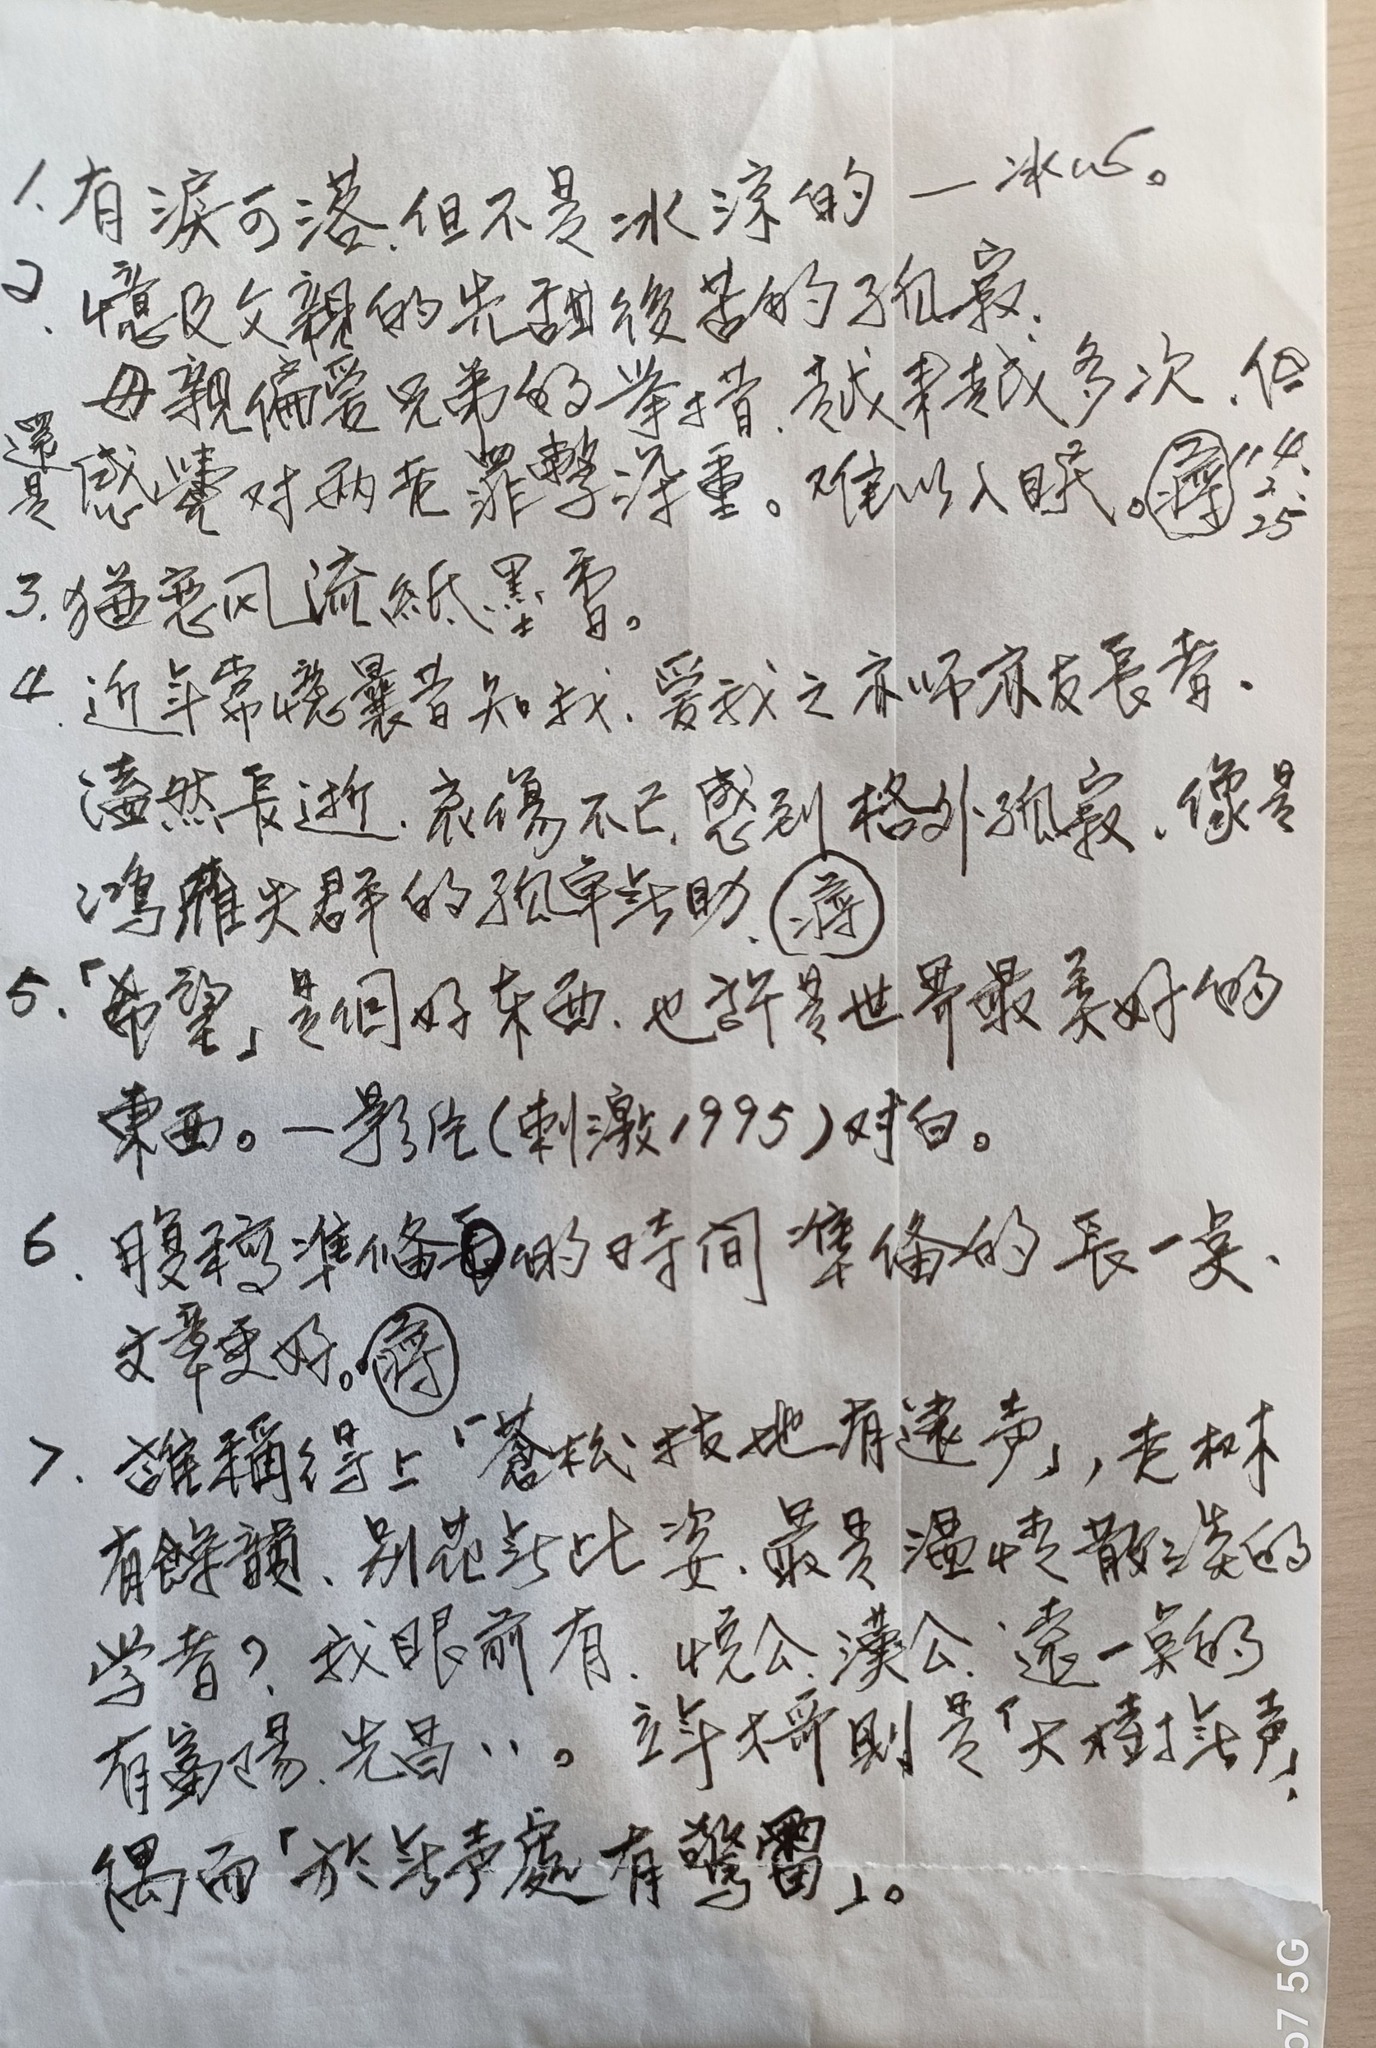 1. 有淚可落、但不是冰涼的 — 冰心。
2、憶及父親的先甜後苦的孤寂、
母親偏愛兄弟的举措、越来越多次、但
還是感覺对兩老罪孽深重。难以入眠。蔣 114. 2. 25
3. 猶戀风流紙墨香。
4、近年常憶曩昔知我、愛我之亦师亦友長者、
溘然長逝、哀傷不已、感到格外孤寂、像是
鴻雁失群的孤单无助、蔣
5.「希望」是個好东西、也許是世界最美好的
東西。—影片(刺激1995)对白。
6、腹稿準備的時间準備的長一点、
文章更好。蔣
7、誰稱得上「蒼松拔地有遠声」,老树
有餘韻、别花无比姿、最是溫情散淡的
学者？我眼前有、悦公、漢公、遠一点的
有富陽、先昌..。立年大哥則是「大樹无声」、
偶而「於无声處有驚雷」。
p7 5G